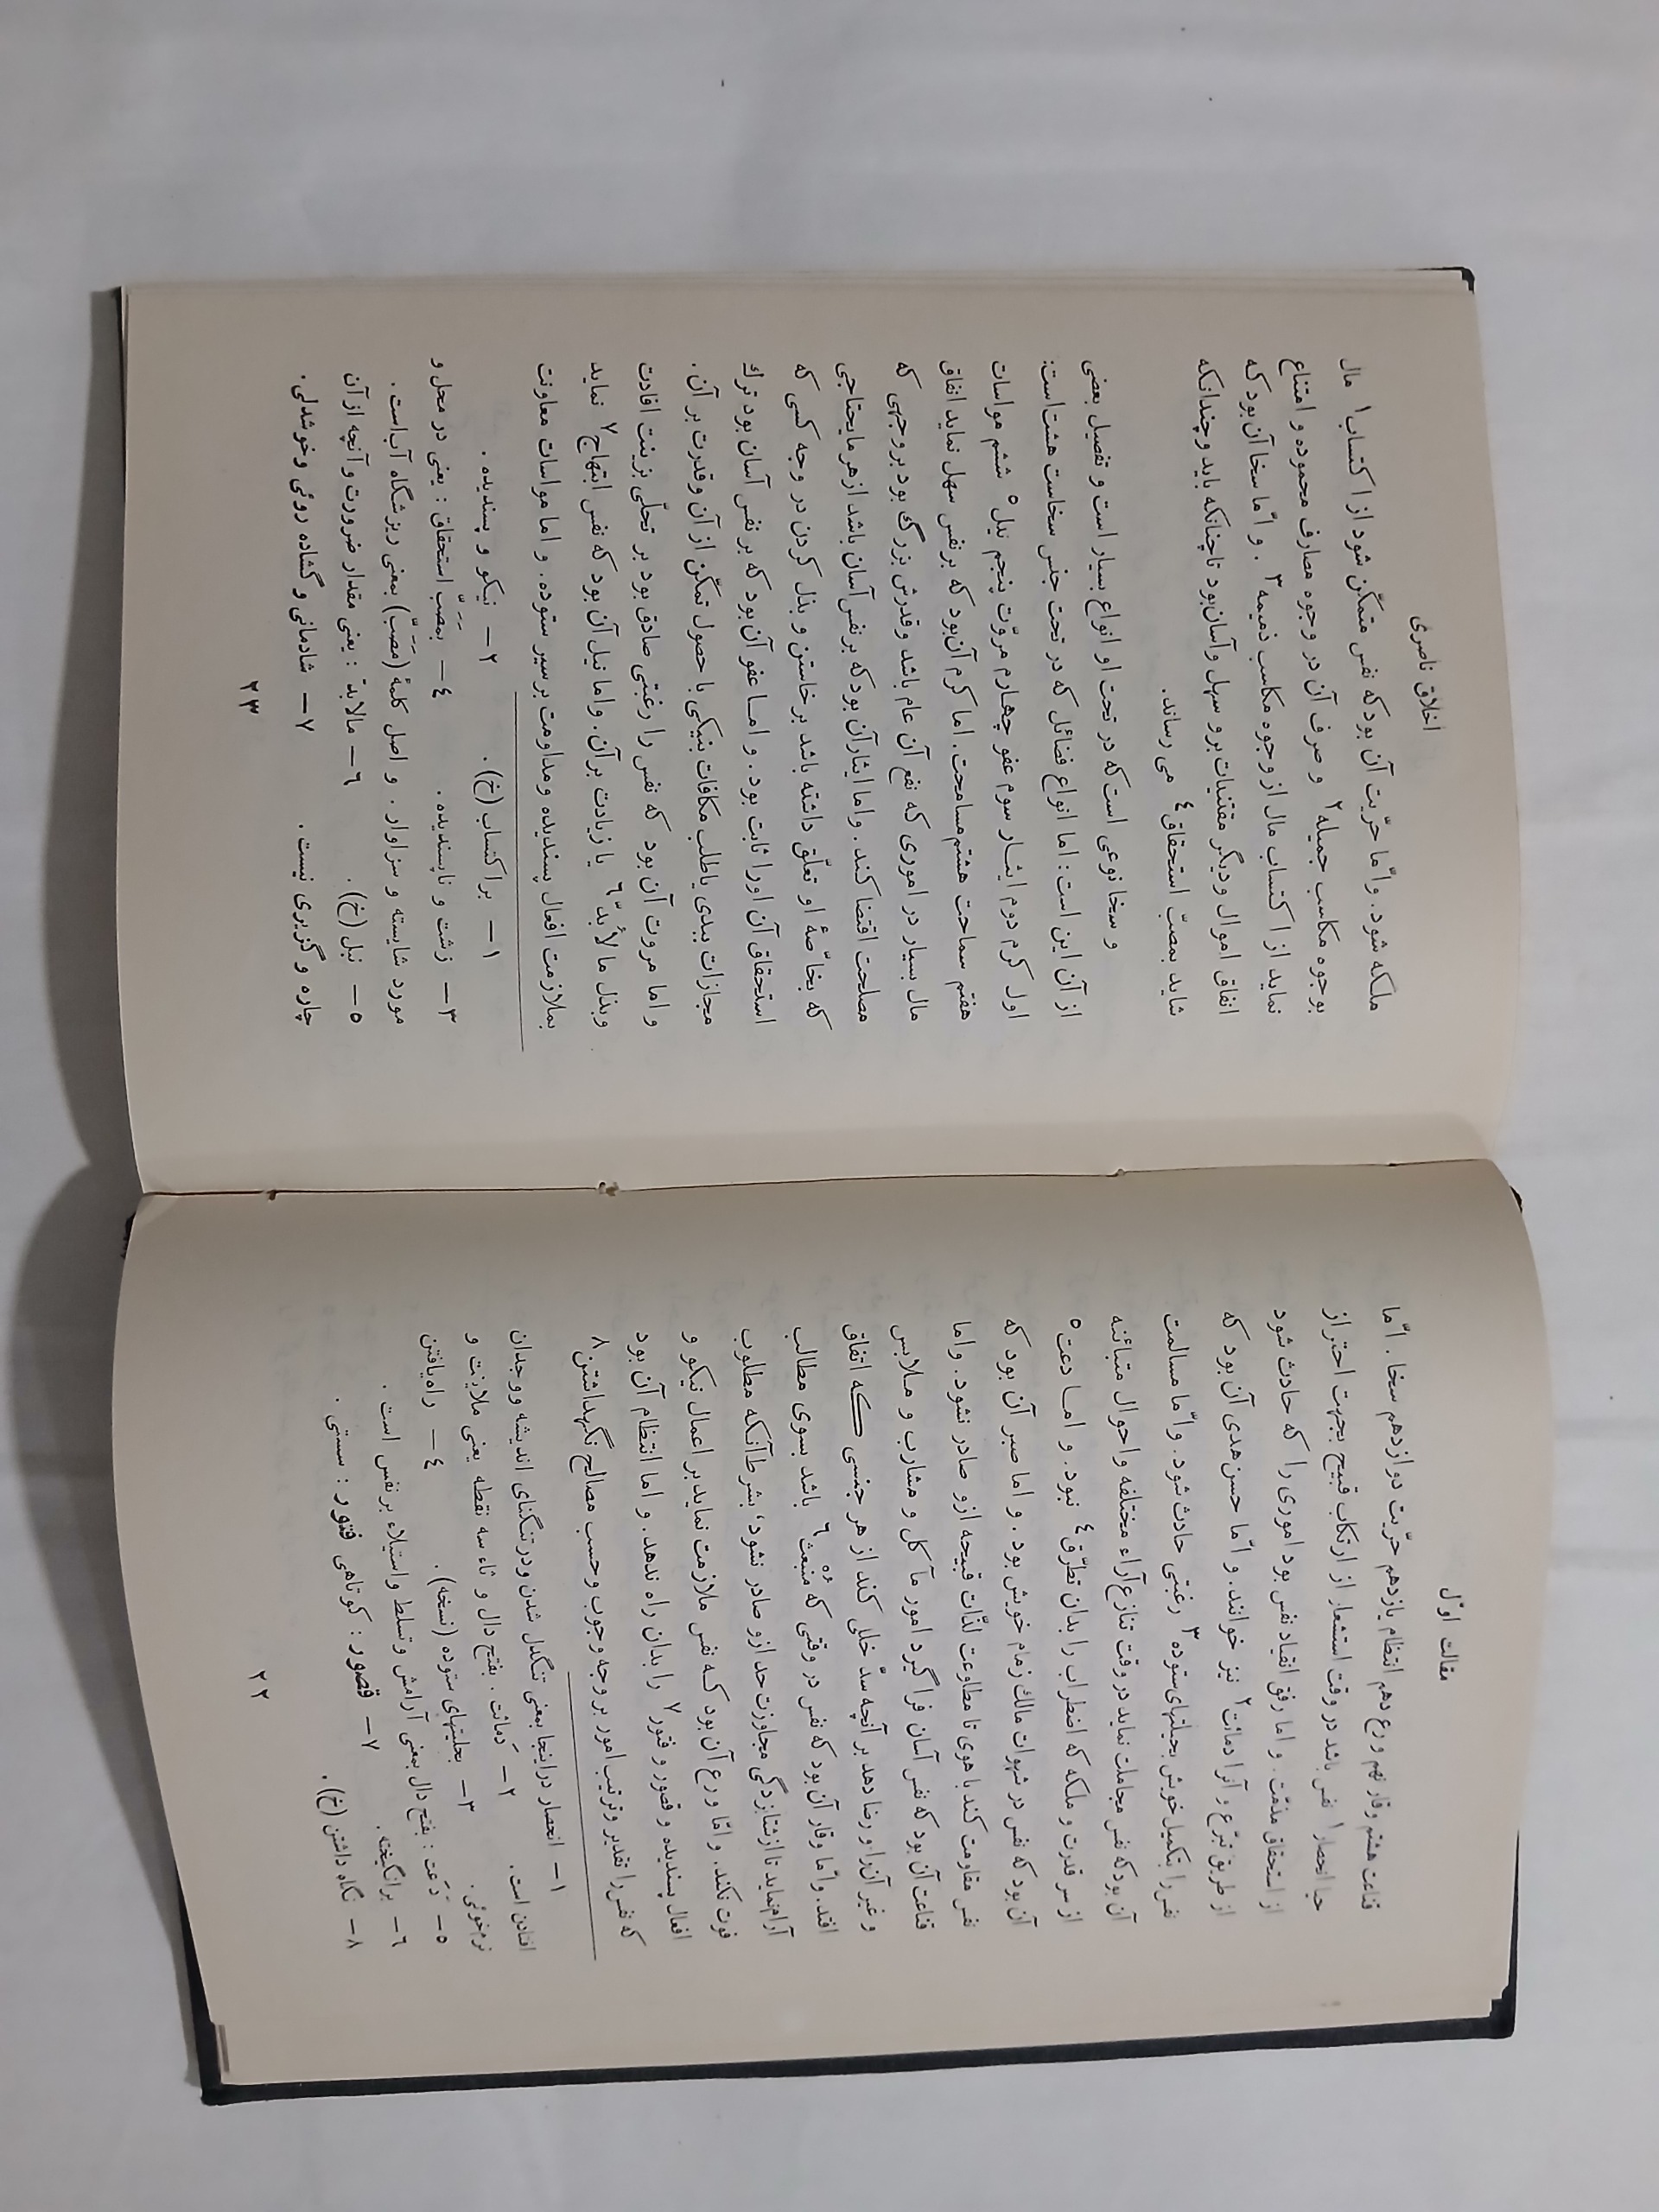 مقالت اوّل
قناعت هشتم وقار نهم ورع دهم انتظام یازدهم حرّیت دوازدهم سخا. امّا
حیا انحصار۱ نفس باشد در وقت استشعار از ارتکاب قبیح بجهت احتراز
از استحقاق مذمّت. و اما رفق انقیاد نفس بود اموری را که حادث شود
از طریق تبرّع و آنرا دماثت۲ نیز خوانند. و امّا حسن هدی آن بود که
نفس را بتکمیل خویش بحیلتهای ستوده۳ رغبتی حادث شود. و امّا مسالمت
آن بود که نفس مجاملت نماید در وقت تنازع آراء مختلفه و احوال متبائنه
از سر قدرت و ملکه که اضطراب را بدان تطرّق۴ نبود. و امــا دعت۵
آن بود که نفس در شهوات مالك زمام خویش بود. و اما صبر آن بود که
نفس مقاومت کند با هوی تا مطاوعت لذّات قبیحه ازو صادر نشود. و اما
قناعت آن بود که نفس آسان فراگیرد امور مآکل و مشارب و مـلابس
و غیر آن را و رضا دهد بر آنچه سدّ خللی کند از هر جنسی کــه اتفاق
افتد. و امّا وقار آن بود که نفس در وقتی که منبعث۶ باشد بسوی مطالب
آرام نماید تا از شتابزدگی مجاوزت حد ازو صادر نشود، بشرط آنکه مطلوب
فوت نکند. و امّا ورع آن بود کــه نفس ملازمت نماید بر اعمال نیکو و
افعال پسندیده و قصور و فتور۷ را بدان راه ندهد. و اما انتظام آن بود
که نفس را تقدیر و ترتیب امور بر وجه وجوب و حسب مصالح نگهداشتن۸
۱ – انحصار در اینجا بمعنی تنگدل شدن و در تنگنای اندیشه و وجدان
افتادن است. ۲ – دَماثت. بفتح دال و ثاء سه نقطه یعنی ملاینت و
نرم‌خوئی. ۳ – بحلیتهای ستوده (نسخه). ۴ – راه یافتن
۵ – دَعَت: بفتح دال بمعنی آرامش و تسلط و استیلاء بر نفس است.
۶ – برانگیخته. ۷ – قصور: کوتاهی فتور: سستی.
۸ – نگاه داشتن (خ).
۲۲
اخلاق ناصری
ملکه شود. و امّا حرّیت آن بود که نفس متمکّن شود از اکتساب۱ مال
بوجوه مکاسب جمیله۲ و صرف آن در وجوه مصارف محموده و امتناع
نماید از اکتساب مال از وجوه مکاسب ذمیمه۳. و امّا سخا آن بود که
انفاق اموال و دیگر مقتنیات برو سهل و آسان بود تا چنانکه باید و چندانکه
شاید بمصبّ استحقاق۴ می رساند.
و سخا نوعی است که در تحت او انواع بسیار است و تفصیل بعضی
از آن این است: اما انواع فضائل که در تحت جنس سخاست هشت است:
اول کرم دوم ایثــار سوم عفو چهــارم مروّت پنجم نیل۵ ششم مواسات
هفتم سماحت هشتم مسامحت. اما کرم آن بود که بر نفس سهل نماید انفاق
مال بسیار در اموری که نفع آن عام باشد و قدرش بزرگ بود بر وجهی که
مصلحت اقتضا کند. و اما ایثار آن بود که بر نفس آسان باشد از هر مایحتاجی
که بخاصّهٔ او تعلّق داشته باشد برخاستن و بذل کردن در وجه کسی که
استحقاق آن او را ثابت بود. و امــا عفو آن بود که بر نفس آسان بود ترك
مجازات ببدی یا طلب مکافات بنیکی با حصول تمکّن از آن و قدرت بر آن.
و اما مروت آن بود که نفس را رغبتی صادق بود بر تحلّی بزینت افادت
و بذل ما لابُدّ۶ یا زیادت بر آن. و اما نیل آن بود که نفس ابتهاج۷ نماید
بملازمت افعال پسندیده و مداومت بر سیر ستوده. و اما مواسات معاونت
۱ – بر اکتساب (خ). ۲ – نیکو و پسندیده.
۳ – زشت و ناپسندیده. ۴ – بمَصَبّ استحقاق: یعنی در محل و
مورد شایسته و سزاوار. و اصل کلمهٔ (مَصَبّ) بمعنی ریزشگاه آب است.
۵ – نبل (خ). ۶ – مالابد: یعنی مقدار ضرورت و آنچه از آن
چاره و گزیری نیست. ۷ – شادمانی و گشاده روئی و خوشدلی.
۲۳